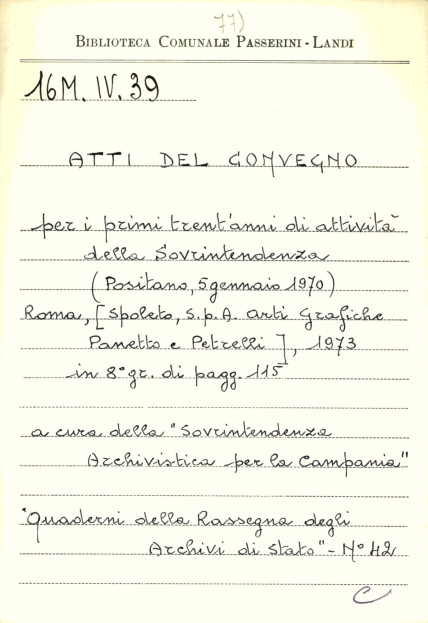 77)
BIBLIOTECA COMUNALE PASSERINI - LANDI
16M. IV. 39
ATTI DEL CONVEGNO
per i primi trent'anni di attività
della Sovrintendenza
(Positano, 5 gennaio 1970)
Roma, [Spoleto, S.p.A. Arti Grafiche
Panetto e Petrelli], 1973
in 8° gr. di pagg. 115
a cura della "Sovrintendenza
Archivistica per la Campania"
"Quaderni della Rassegna degli
Archivi di Stato" - N° 42
C